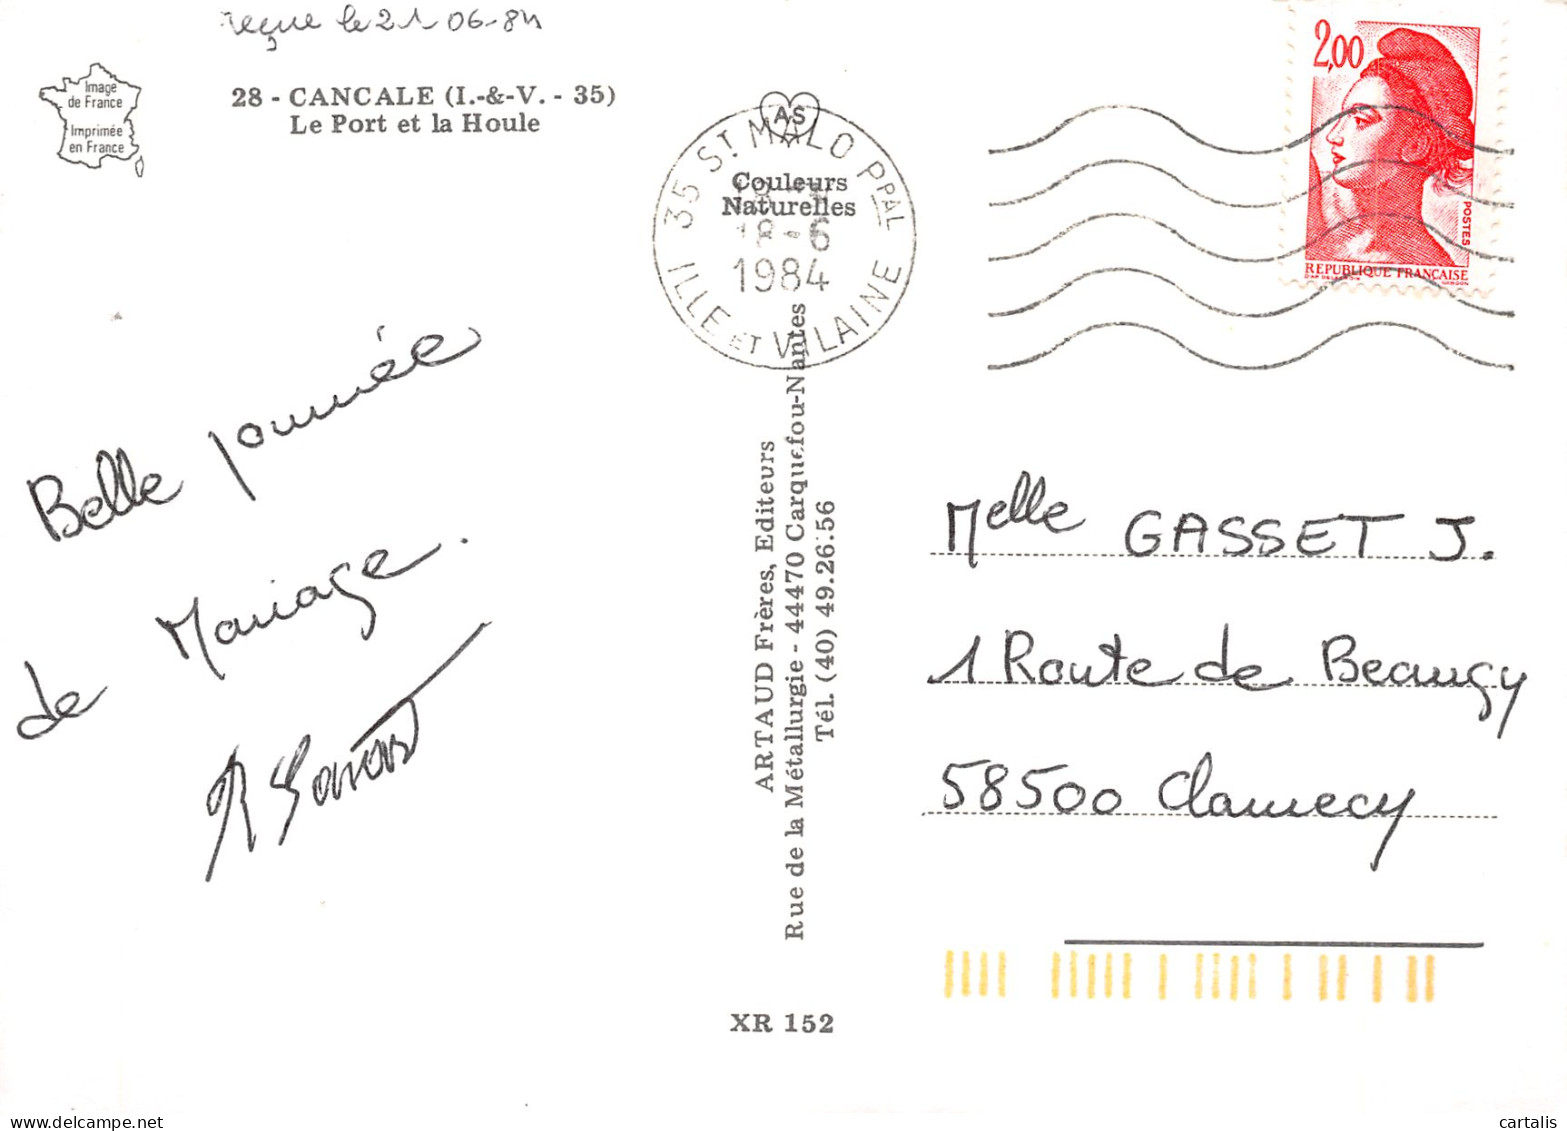 reçue le 21 06-84
Image
de France
Imprimée
en France
28 - CANCALE (I.-&-V. - 35)
Le Port et la Houle
AS
Couleurs
Naturelles
35 ST MALO PPAL
18-6
1984
ILLE ET VILAINE
2,00
POSTES
REPUBLIQUE FRANÇAISE
Belle journée
de Mariage.
ARTAUD Frères, Editeurs
Rue de la Métallurgie - 44470 Carquefou-Nantes
Tél. (40) 49.26.56
Melle GASSET J.
1 Route de Beaugy
58500 Clamecy
XR 152
cartalis